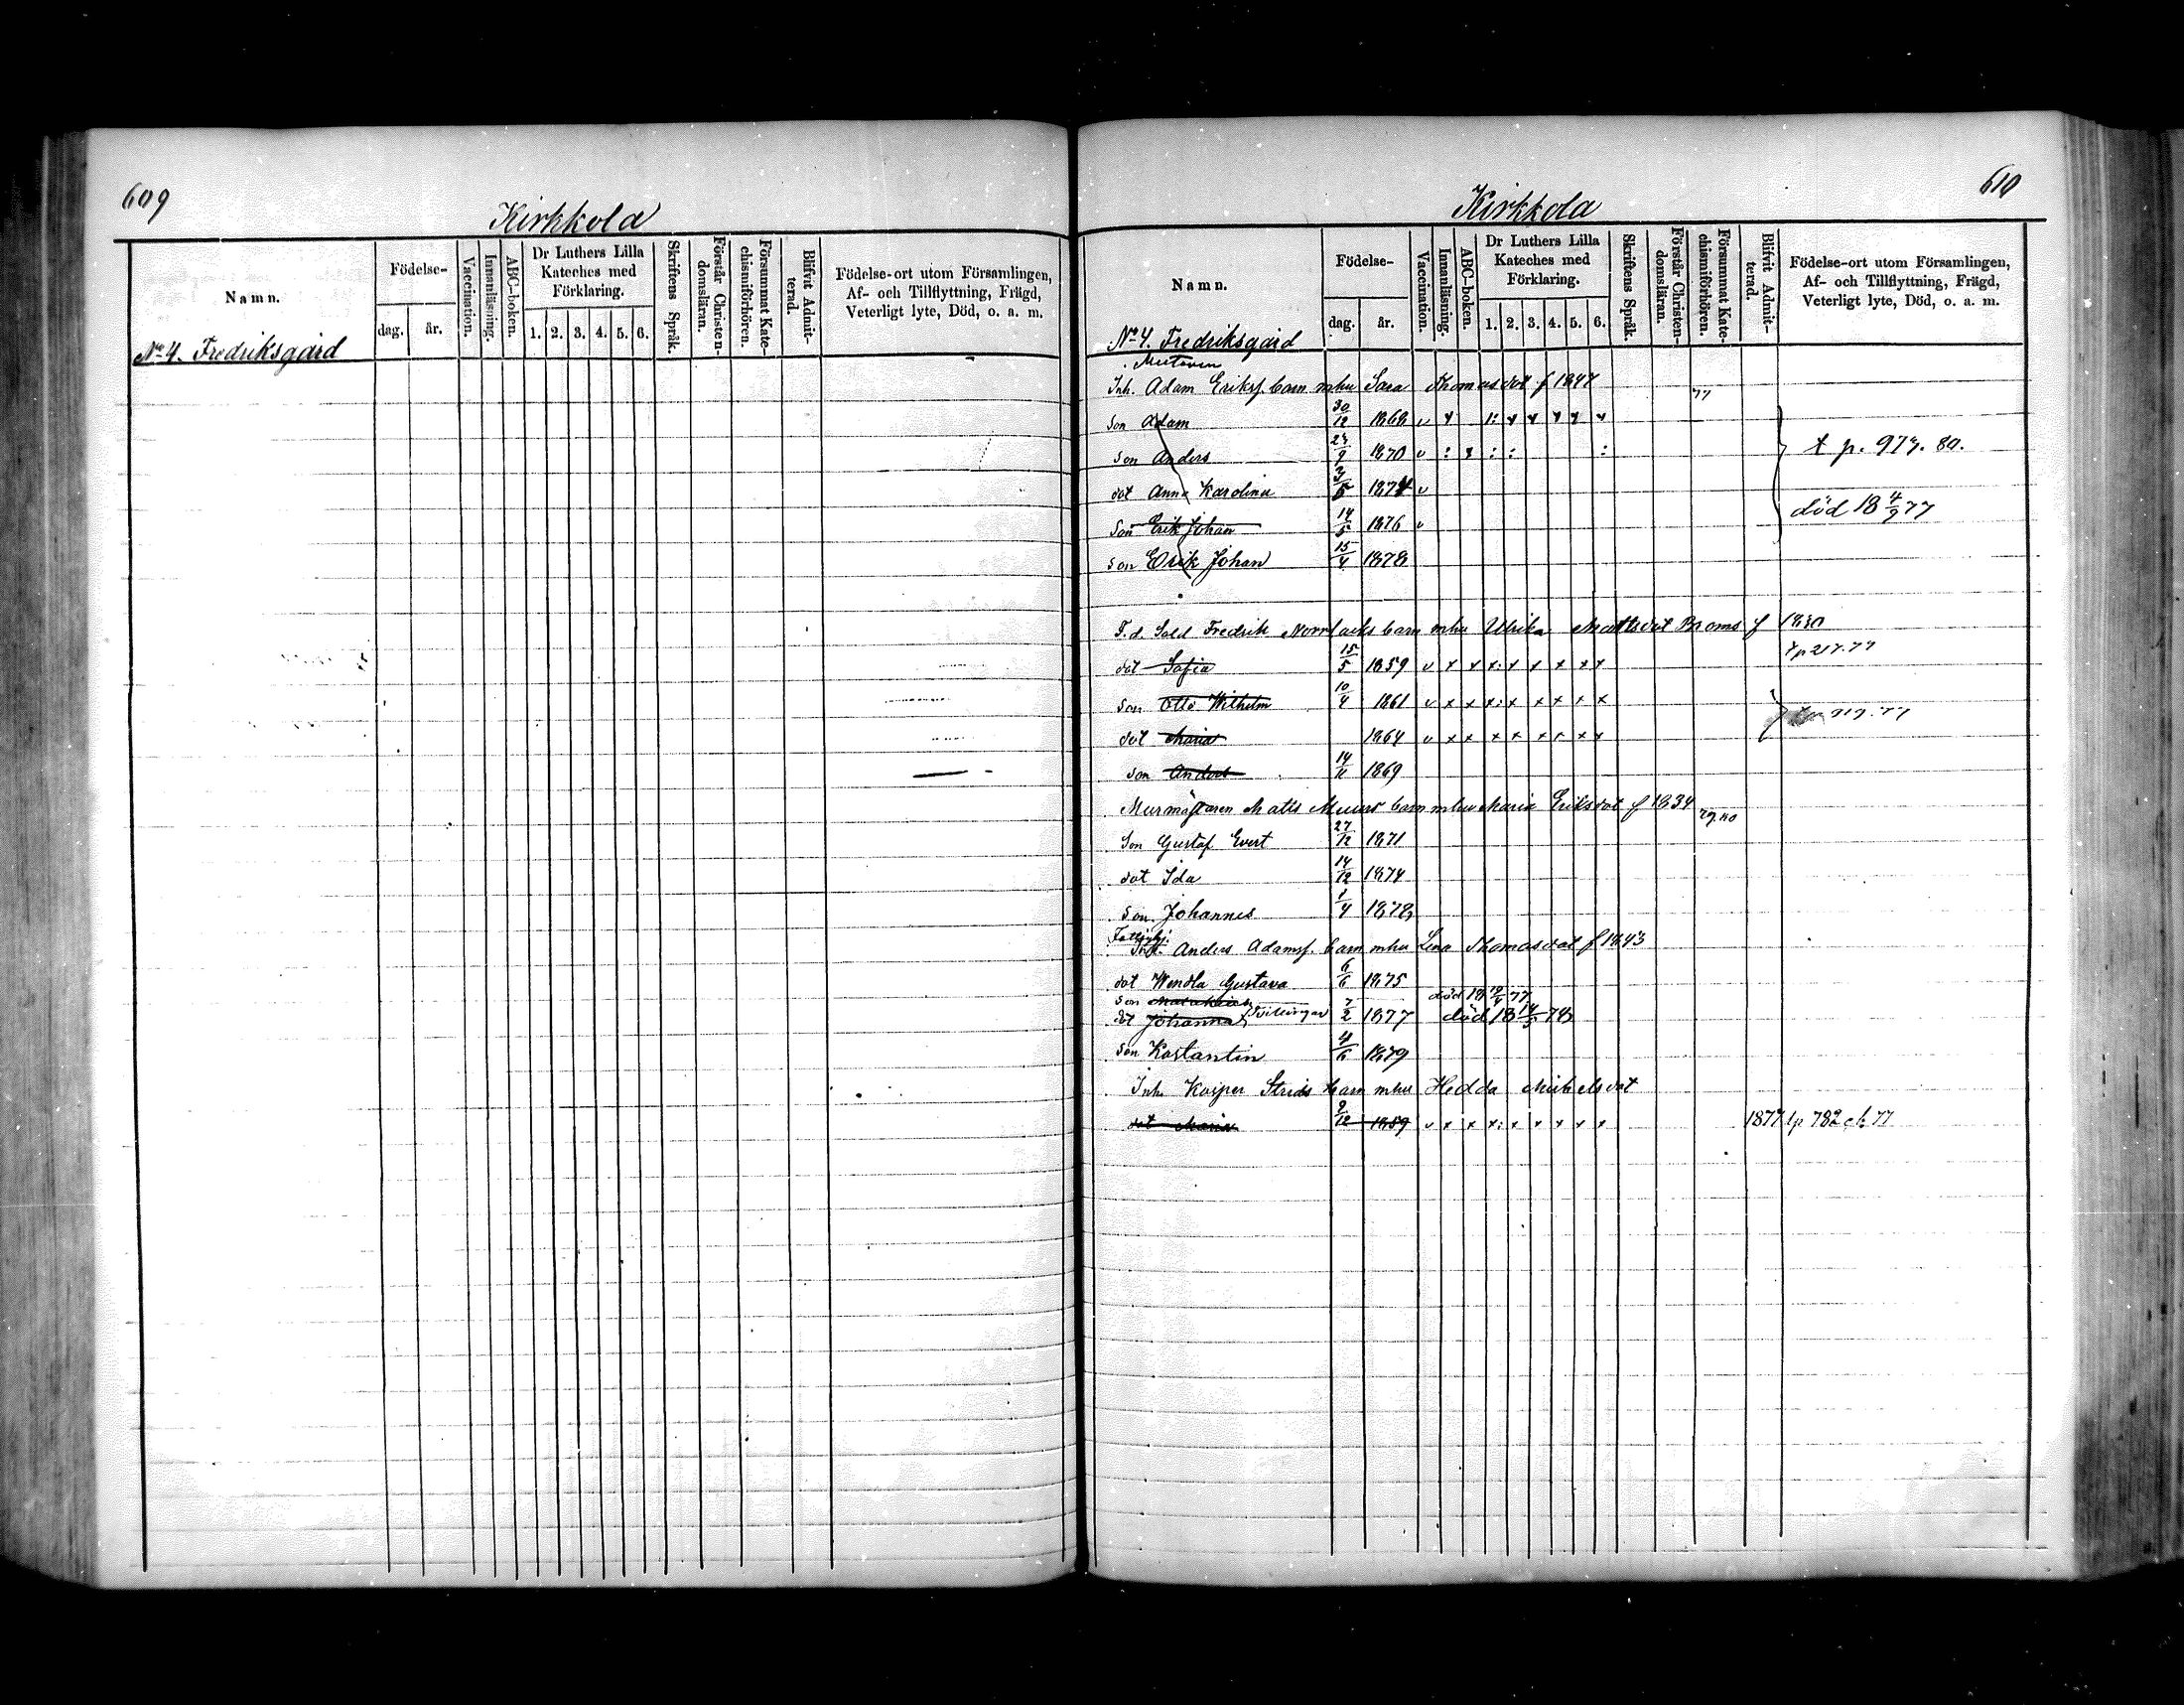 609
Kirkkola
Namn.
Födelse-
dag.
år.
Vaccination.
Innanläsning.
ABC-boken.
Dr Luthers Lilla Kateches med Förklaring.
1. 2. 3. 4. 5. 6.
Skriftens Språk.
Förstår Christendomsläran.
Försummat Katechismiförhören.
Blifvit Admitterad.
Födelse-ort utom Församlingen, Af- och Tillflyttning, Frägd, Veterligt lyte, Död, o. a. m.
No 4. Fredriksgård
610
Kirkkola
Namn.
Födelse-
dag.
år.
Vaccination.
Innanläsning.
ABC-boken.
Dr Luthers Lilla Kateches med Förklaring.
1. 2. 3. 4. 5. 6.
Skriftens Språk.
Förstår Christen-domsläran.
Försummat Kate-chismiförhören.
Blifvit Admit-terad.
Födelse-ort utom Församlingen, Af- och Tillflyttning, Frägd, Veterligt lyte, Död, o. a. m.
No 4. Fredriksgård
Inh. Adam Eriks. barn mhu Sara Thomasdot f 1847 77
son Adam 30/12 1868 v
son Anders 9 1870 v t p. 80.
dot Anna Karolina 1874 v
son Erik Johan 14 1876 v död 18 4/9 77
son Erik Johan 15/4 1878
F.d. Sold Fredrik Norrbacks barn mhu Ulrika Mattsdot Broms f 1830
dot Sofia 15/5 1859 v x x x: x x x x x
son Otto Wilhelm 10/4 1861 v x x x: x x x x x
dot Maria 1864 v x x x x x x x x
son Anders 14 1869
Murmästaren Matts Muurs barn mhu Maria Eriksdot f 1834
son Gustaf Evert 27/12 1871
dot Ida 14/12 1874
son Johannes 1/4 1878
Inh. Anders Adamss. barn mhu Lena Thomasdot f 1843
dot Wendla Gustava 6/6 1875
son
dot Johanna Tvillingar 7/2 1877 död 18 78
son Kostantin 4/6 1879
Inh. Kasper Strids barn mhu Hedda Michelsdot
dot Maria 9/12 1859 v x x x: x x x x x 1877 tp 782 77